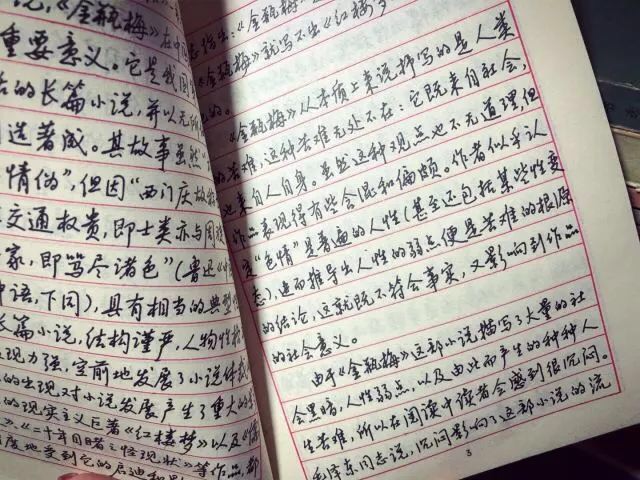 说,《金瓶梅》在中
重要意义。它是我国
活的长篇小说,并以无
创造著成。其故事虽然
情伪”,但因“西门庆故
交通权贵,即士类亦与周旋
家,即骂尽诸色”(鲁迅《
史语,下同),具有相当的典型
长篇小说,结构谨严,人物性格
现力强,空前地发展了小说体裁
的出现对小说发展产生了重大的
的现实主义巨著《红楼梦》以及《儒
》、《二十年目睹之怪现状》等作品,都
度地受到它的启迪和影
指出:《金瓶梅》
《金瓶梅》就写不出《红楼梦
的。
《金瓶梅》从本质上来说抒写的是人类
的苦难,这种苦难无处不在:它既来自社会,
也来自人自身。虽然这种观点也不无道理,但
作品表现得有些含混和偏颇。作者似乎认
定“色情”是普遍的人性(甚至还包括某些性变
态),进而推导出人性的弱点便是苦难的根源
的结论,这就既不符合事实,又影响到作品
的社会意义。
由于《金瓶梅》这部小说描写了大量的社
会黑暗,人性弱点,以及由此而产生的种种人
生苦难,所以在阅读中读者会感到很沉闷。
毛泽东同志说,沉闷影响了这部小说的流
3